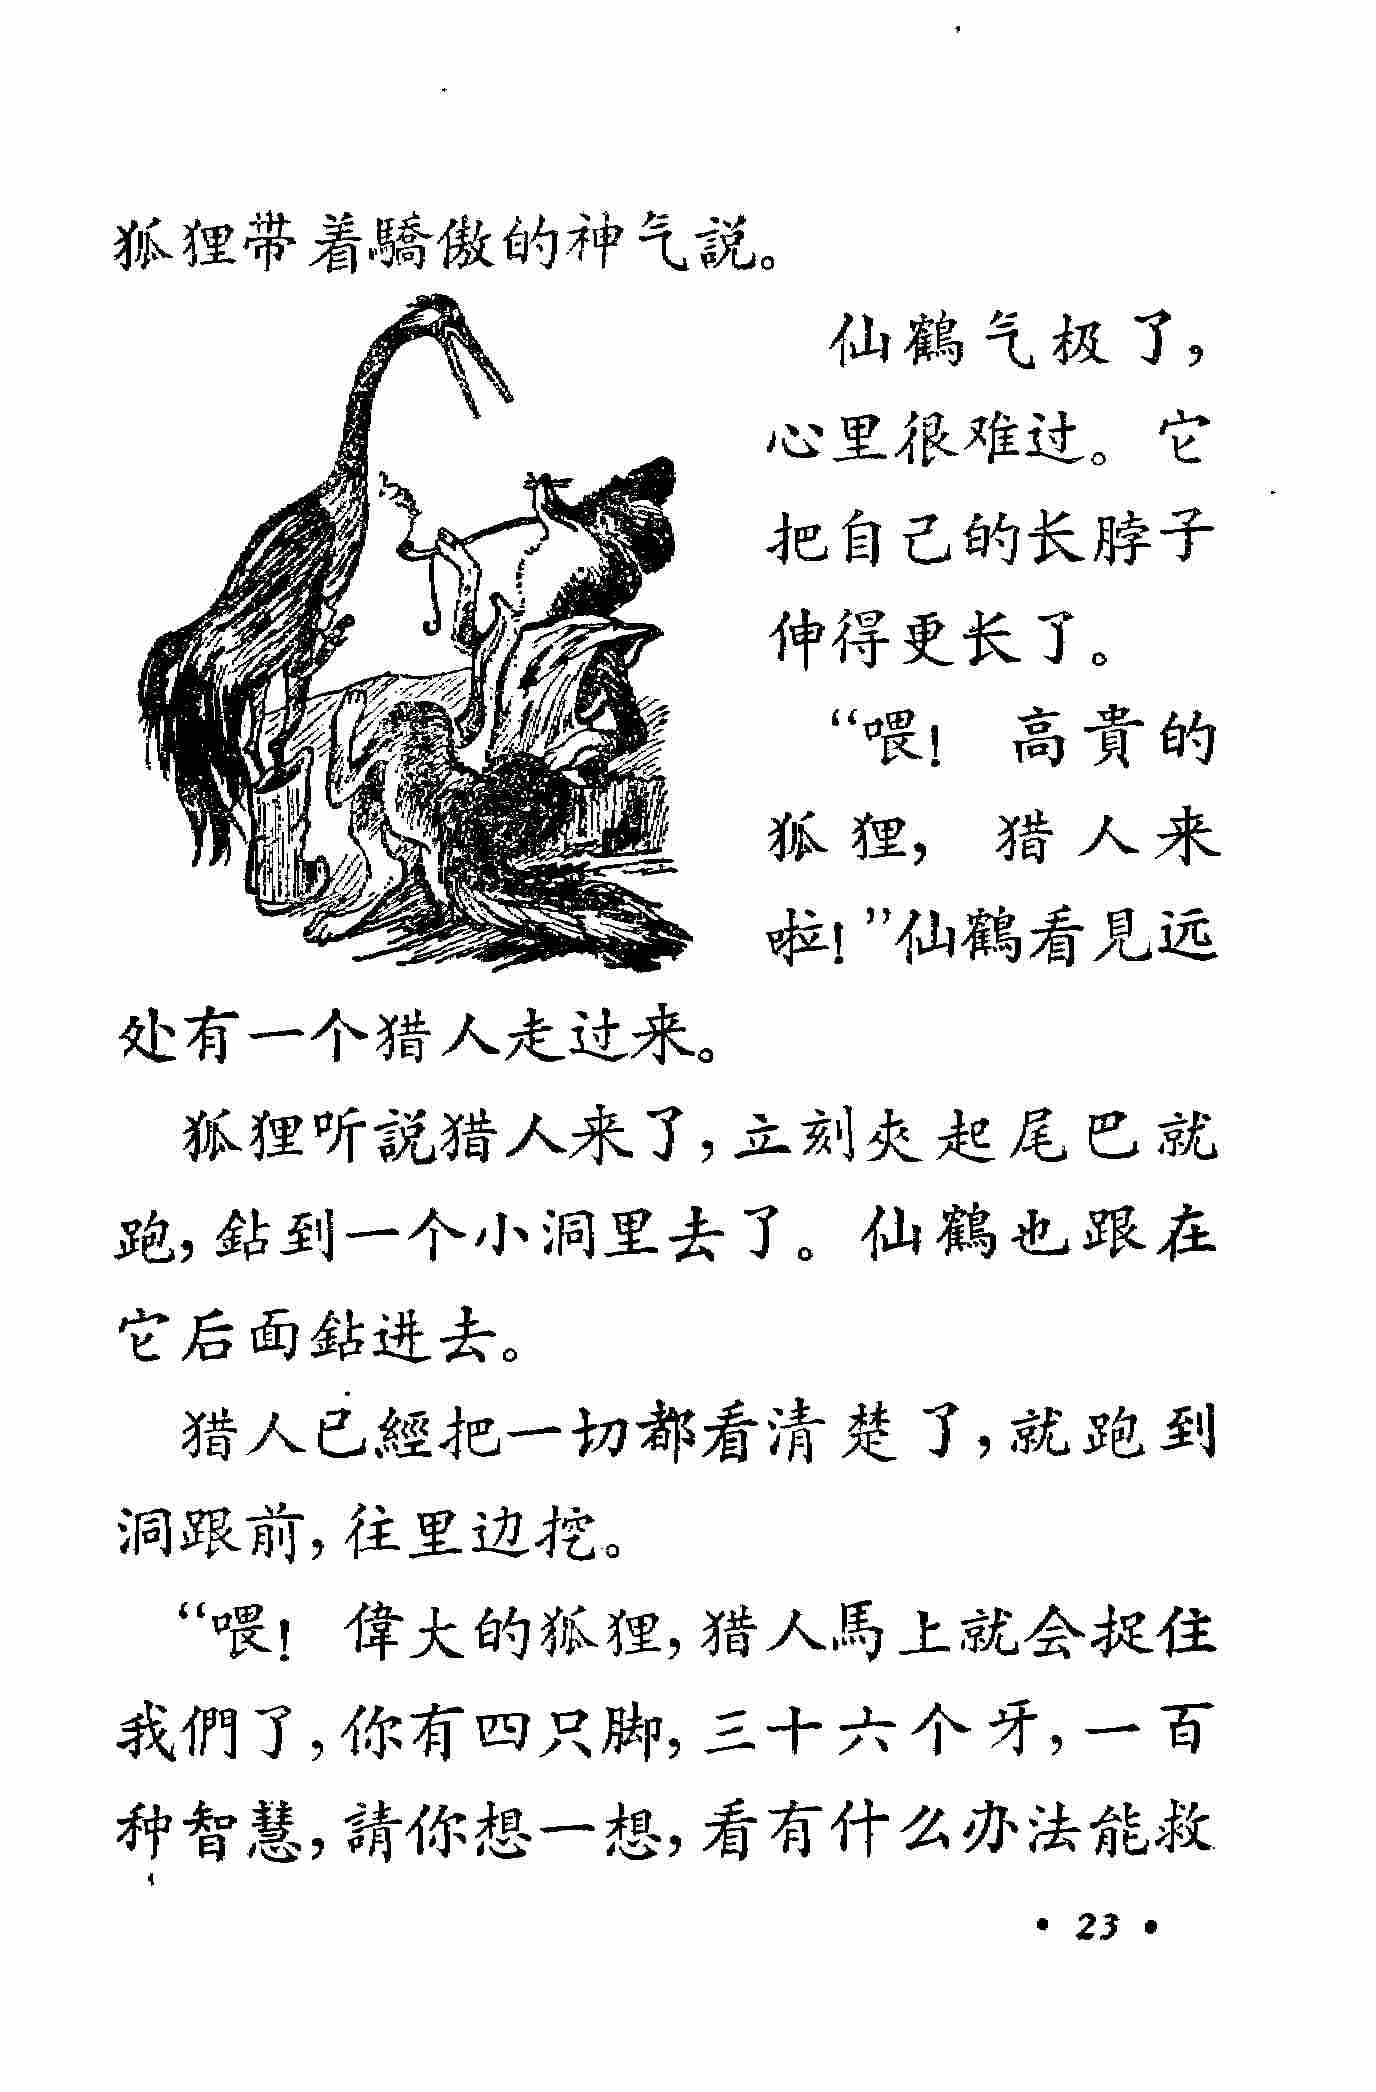 狐狸带着驕傲的神气説。
仙鶴气极了，
心里很难过。它
把自己的长脖子
伸得更长了。
“喂！高貴的
狐狸，猎人来
啦！”仙鶴看見远
处有一个猎人走过来。
狐狸听説猎人来了，立刻夾起尾巴就
跑，鉆到一个小洞里去了。仙鶴也跟在
它后面鉆进去。
猎人已經把一切都看清楚了，就跑到
洞跟前，往里边挖。
“喂！偉大的狐狸，猎人馬上就会捉住
我們了，你有四只脚，三十六个牙，一百
种智慧，請你想一想，看有什么办法能救
• 23 •